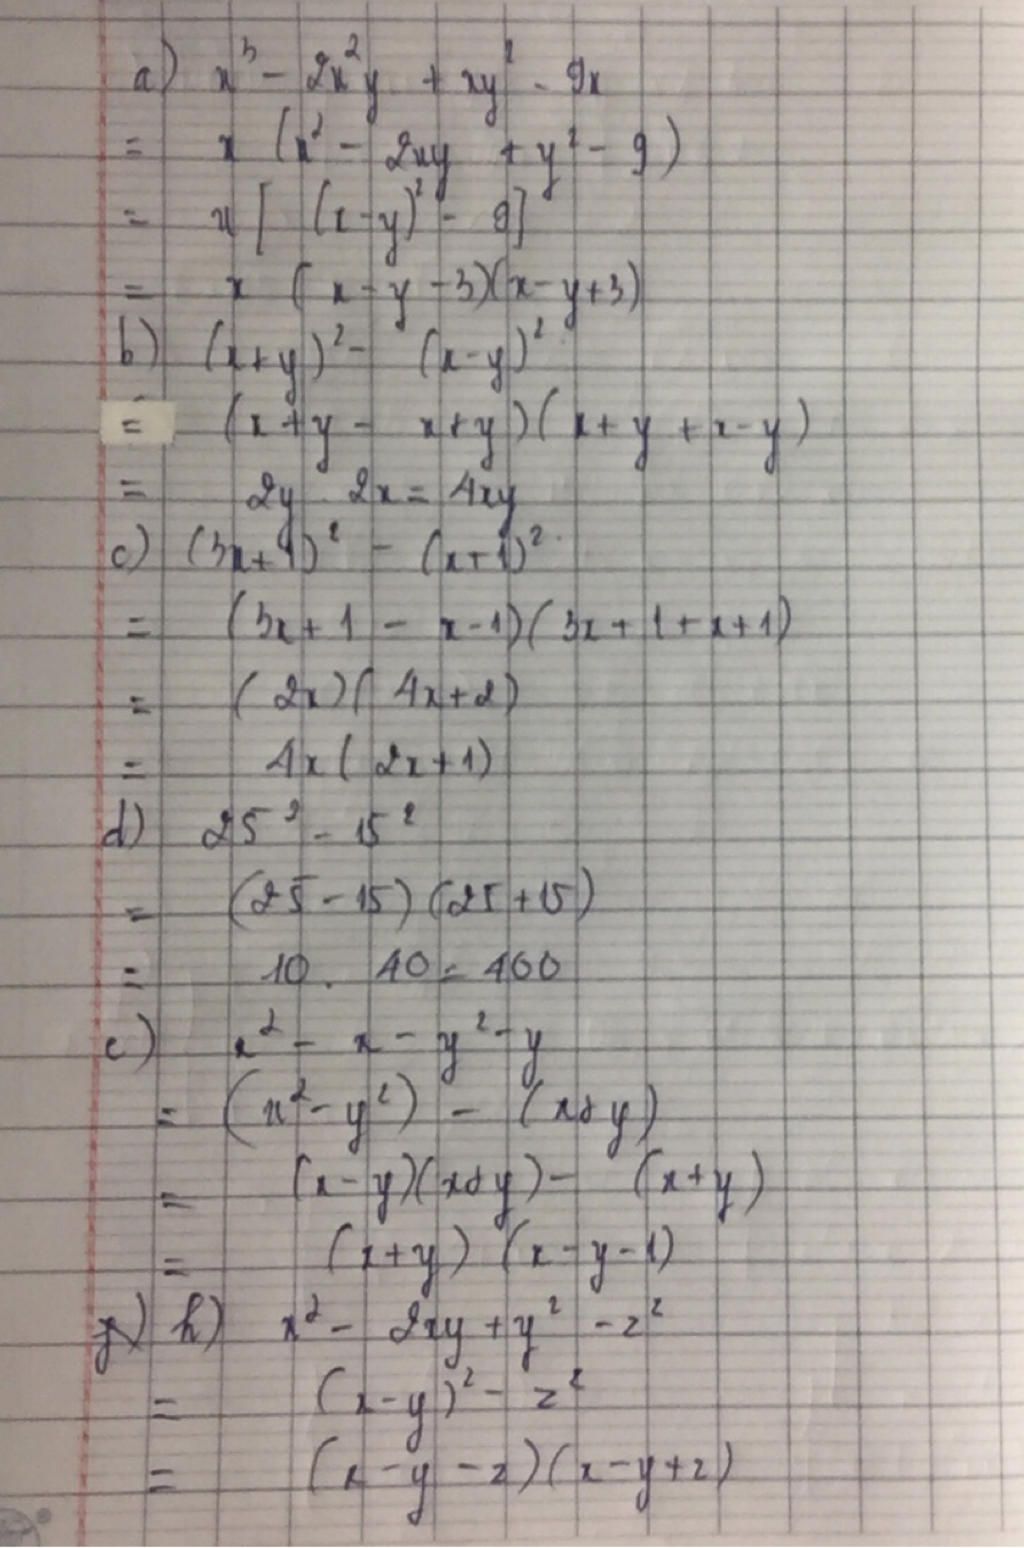 a) x³ - 2x²y + xy² - 9x
= x (x² - 2xy + y² - 9)
= x [ (x-y)² - 9]
= x (x-y-3)(x-y+3)
b) (x+y)² - (x-y)²
= (x+y - x+y)(x+y+x-y)
= 2y . 2x = 4xy
c) (3x+1)² - (x+1)²
= (3x+1 - x-1)(3x+1+x+1)
= (2x)(4x+2)
= 4x(2x+1)
d) 25² - 15²
= (25-15)(25+15)
= 10 . 40 = 400
e) x² - x - y² - y
= (x²-y²) - (x+y)
= (x-y)(x+y) - (x+y)
= (x+y)(x-y-1)
h) x² - 2xy + y² - z²
= (x-y)² - z²
= (x-y-z)(x-y+z)